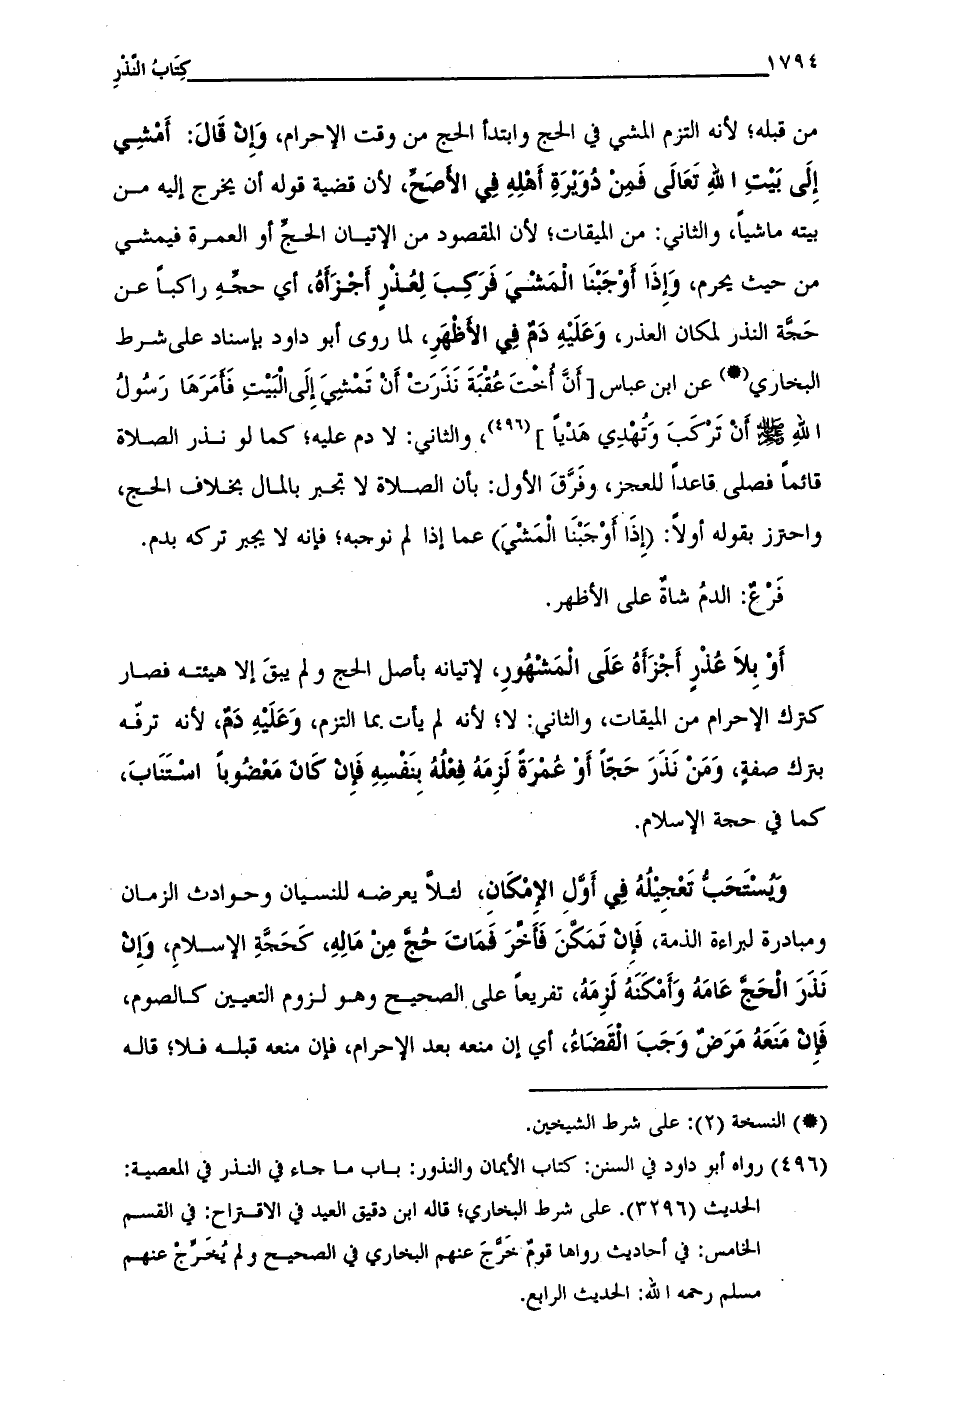 ١٧٩٤ كِتَابُ النَّذْرِ
من قبله؛ لأنه التزم المشي في الحج وابتدأ الحج من وقت الإحرام، وَإِنْ قَالَ: أَمْشِي
إِلَى بَيْتِ اللهِ تَعَالَى فَمِنْ دُوَيْرَةِ أَهْلِهِ فِي الأَصَحِّ، لأن قضية قوله أن يخرج إليه من
بيته ماشياً، والثاني: من الميقات؛ لأن المقصود من الإتيان الحجِّ أو العمرة فيمشي
من حيث يحرم، وَإِذَا أَوْجَبْنَا الْمَشْيَ فَرَكِبَ لِعُذْرٍ أَجْزَأَهُ، أي حجِّهِ راكباً عن
حَجَّة النذر لمكان العذر، وَعَلَيْهِ دَمٌ فِي الأَظْهَرِ، لما روى أبو داود بإسناد على شرط
البخاري(*) عن ابن عباس [أَنَّ أُخْتَ عُقْبَةَ نَذَرَتْ أَنْ تَمْشِيَ إِلَى الْبَيْتِ فَأَمَرَهَا رَسُولُ
اللهِ ﷺ أَنْ تَرْكَبَ وَتُهْدِي هَدْياً](٤٩٦)، والثاني: لا دم عليه؛ كما لو نذر الصلاة
قائماً فصلى قاعداً للعجز، وفَرَّقَ الأول: بأن الصلاة لا تجبر بالمال بخلاف الحج،
واحترز بقوله أولاً: (إِذَا أَوْجَبْنَا الْمَشْيَ) عما إذا لم نوجبه؛ فإنه لا يجبر تركه بدم.
فَرْعٌ: الدمُ شاةٌ على الأظهر.
أَوْ بِلاَ عُذْرٍ أَجْزَأَهُ عَلَى الْمَشْهُورِ، لإتيانه بأصل الحج ولم يبقَ إلا هيئته فصار
كترك الإحرام من الميقات، والثاني: لا؛ لأنه لم يأت بما التزم، وَعَلَيْهِ دَمٌ، لأنه ترفّه
بترك صفةٍ، وَمَنْ نَذَرَ حَجّاً أَوْ عُمْرَةً لَزِمَهُ فِعْلُهُ بِنَفْسِهِ فَإِنْ كَانَ مَعْضُوباً اسْتَنَابَ،
كما في حجة الإسلام.
وَيُسْتَحَبُّ تَعْجِيْلُهُ فِي أَوَّلِ الإِمْكَانِ، لئلاَّ يعرضه للنسيان وحوادث الزمان
ومبادرة لبراءة الذمة، فَإِنْ تَمَكَّنَ فَأَخَّرَ فَمَاتَ حُجَّ مِنْ مَالِهِ، كَحَجَّةِ الإسلامِ، وَإِنْ
نَذَرَ الْحَجَّ عَامَهُ وَأَمْكَنَهُ لَزِمَهُ، تفريعاً على الصحيح وهو لزوم التعيين كالصوم،
فَإِنْ مَنَعَهُ مَرَضٌ وَجَبَ الْقَضَاءُ، أي إن منعه بعد الإحرام، فإن منعه قبله فلا؛ قاله
(*) النسخة (٢): على شرط الشيخين.
(٤٩٦) رواه أبو داود في السنن: كتاب الأيمان والنذور: باب ما جاء في النذر في المعصية:
الحديث (٣٢٩٦). على شرط البخاري؛ قاله ابن دقيق العيد في الاقتراح: في القسم
الخامس: في أحاديث رواها قومٌ خَرَّجَ عنهم البخاري في الصحيح ولم يُخَرِّجْ عنهم
مسلم رحمه الله: الحديث الرابع.